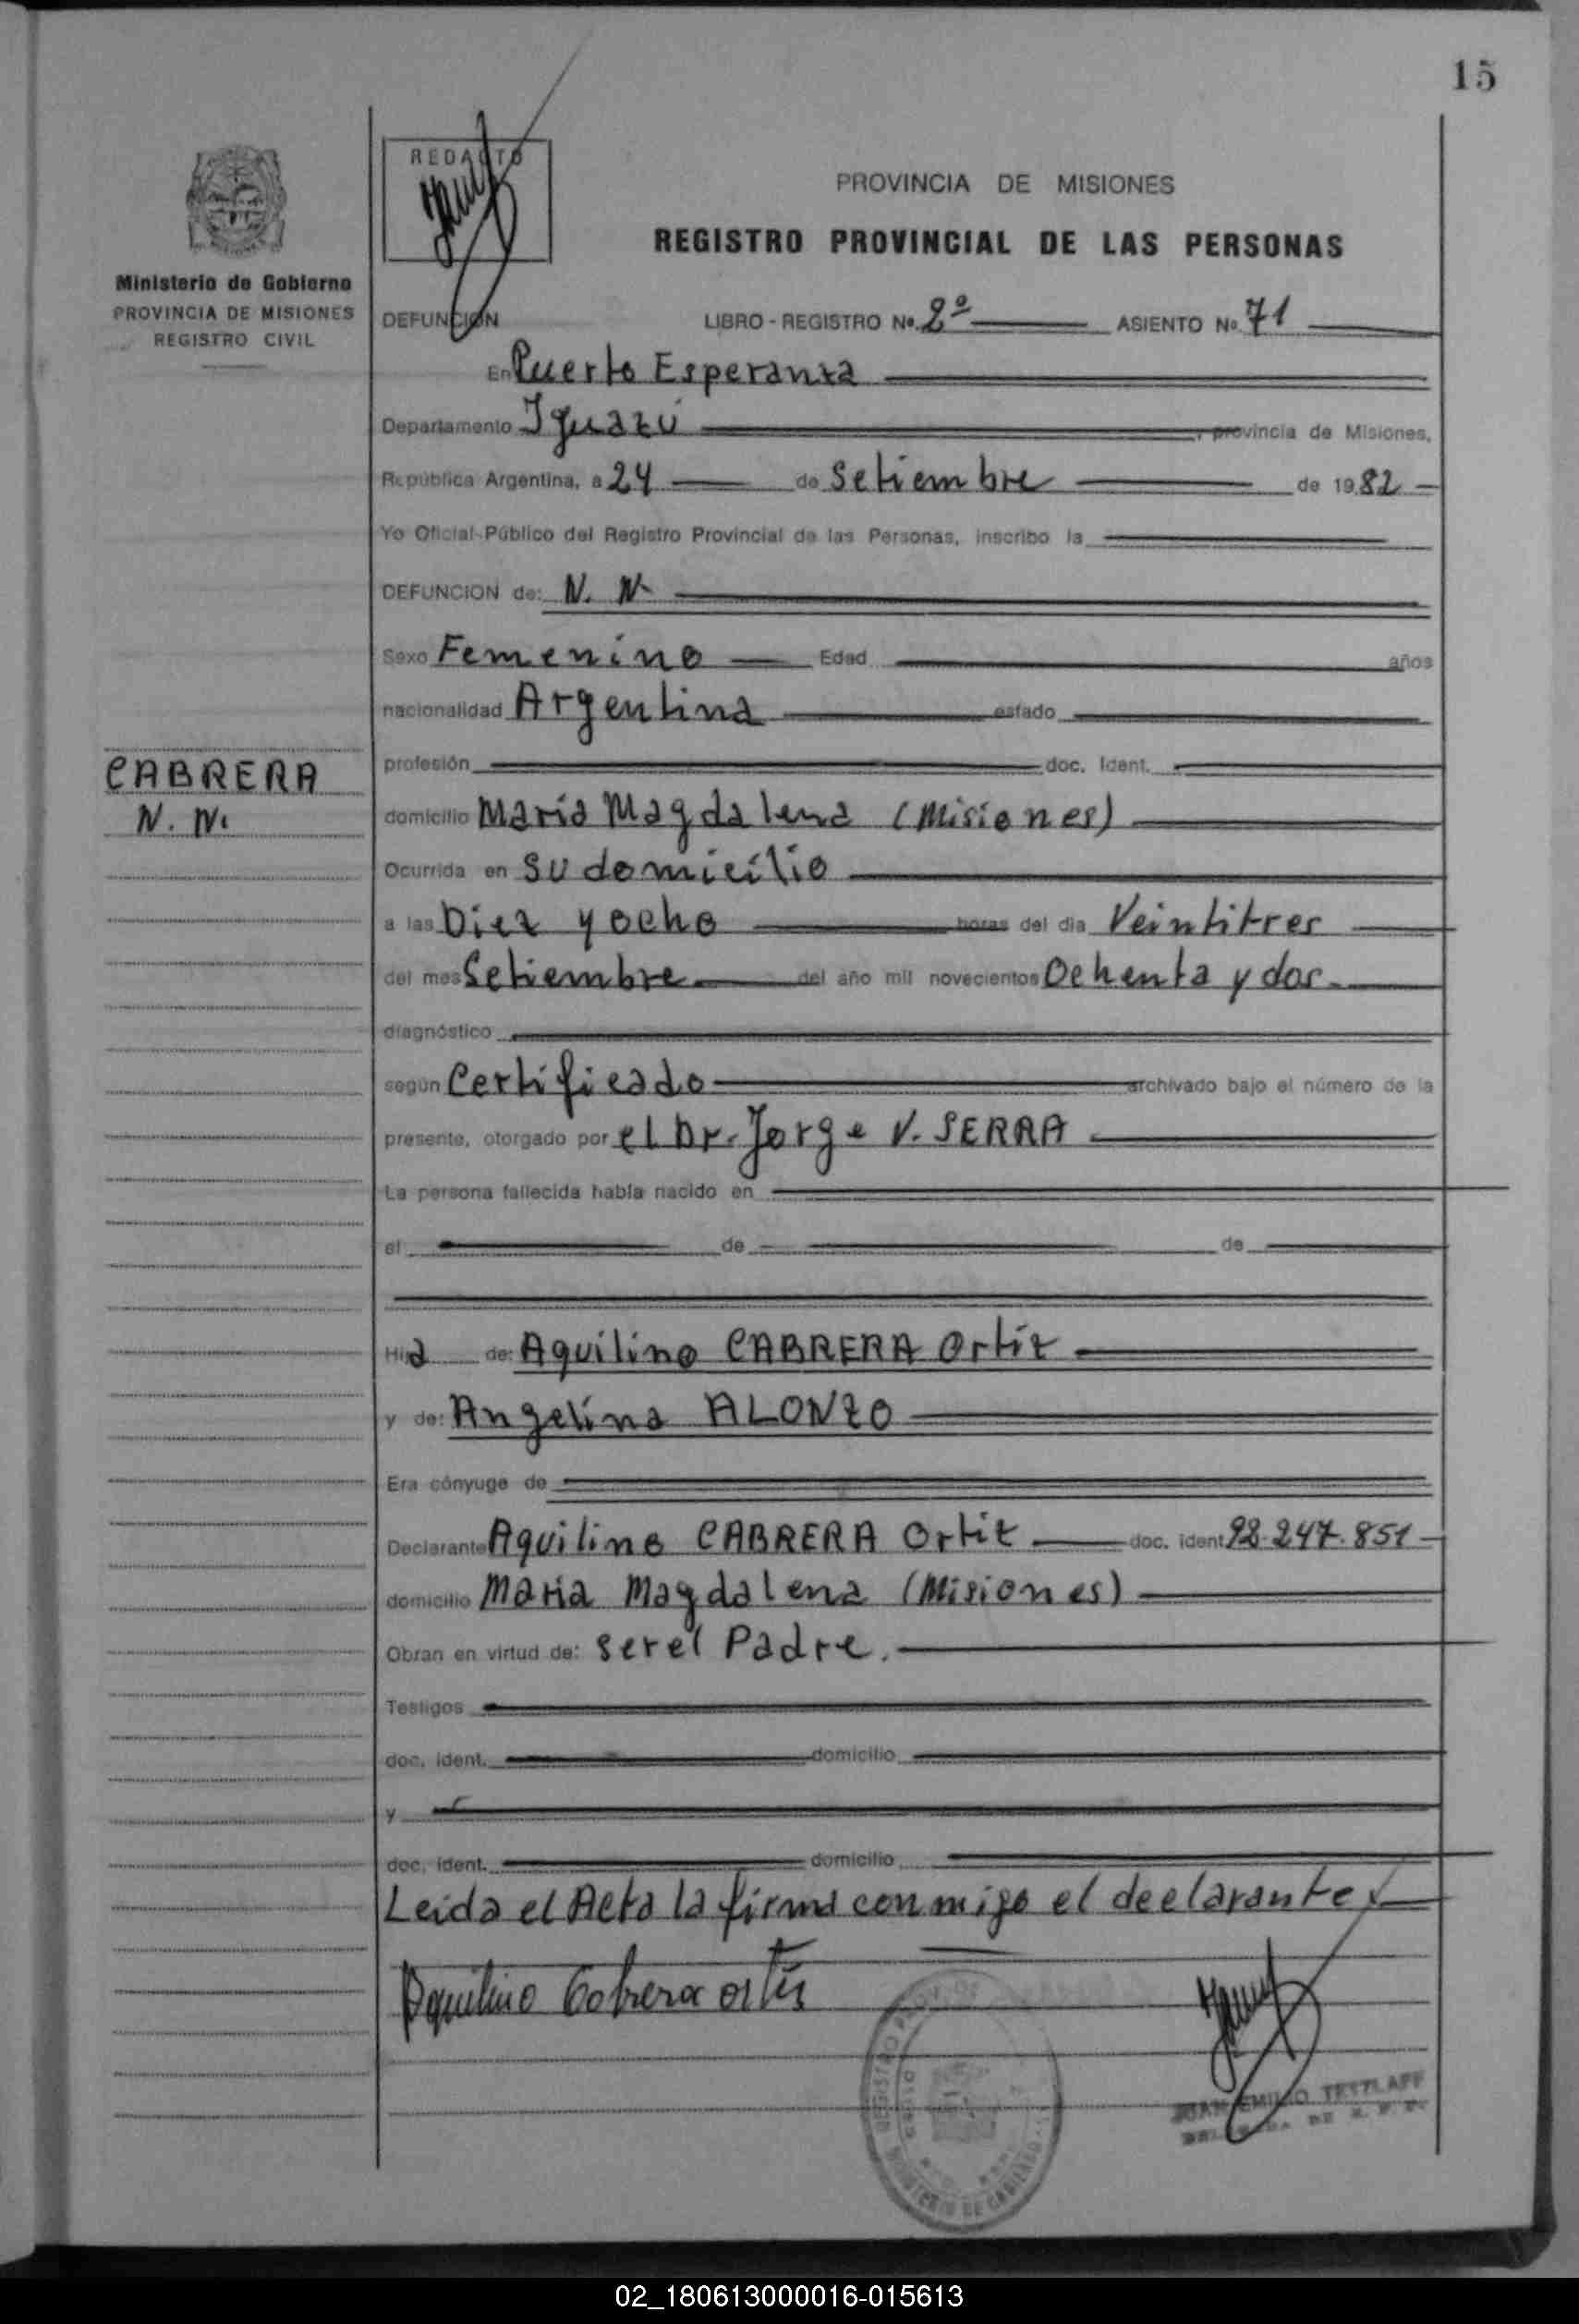 15
REDACTO
PROVINCIA DE MISIONES
REGISTRO PROVINCIAL DE LAS PERSONAS
Ministerio de Gobierno
PROVINCIA DE MISIONES
REGISTRO CIVIL
DEFUNCION LIBRO - REGISTRO No. 2º ASIENTO No. 71
En Puerto Esperanza
Departamento Iguazú, provincia de Misiones,
República Argentina, a 24 de Setiembre de 1982
Yo Oficial Público del Registro Provincial de las Personas, inscribo la
DEFUNCION de: N. N.
Sexo Femenino Edad años
nacionalidad Argentina estado
CABRERA
N. N.
profesión doc. Ident.
domicilio María Magdalena (Misiones)
Ocurrida en su domicilio
a las Diez y ocho horas del dia Veintitres
del mes Setiembre del año mil novecientos Ochenta y dos
diagnóstico
según Certificado archivado bajo el número de la
presente, otorgado por el Dr. Jorge V. SERRA
La persona fallecida había nacido en
el de de
Hija de: Aquilino CABRERA Ortiz
y de: Angelina ALONZO
Era cónyuge de
Declarante Aquilino CABRERA Ortiz doc. ident 92.247.851
domicilio María Magdalena (Misiones)
Obran en virtud de: ser el Padre.
Testigos
doc. ident. domicilio
y
doc. ident. domicilio
Leida el Acta la firma conmigo el declarante
Aquilino Cabrera ortis
JUAN EMILIO TETZLAFF
02_180613000016-015613